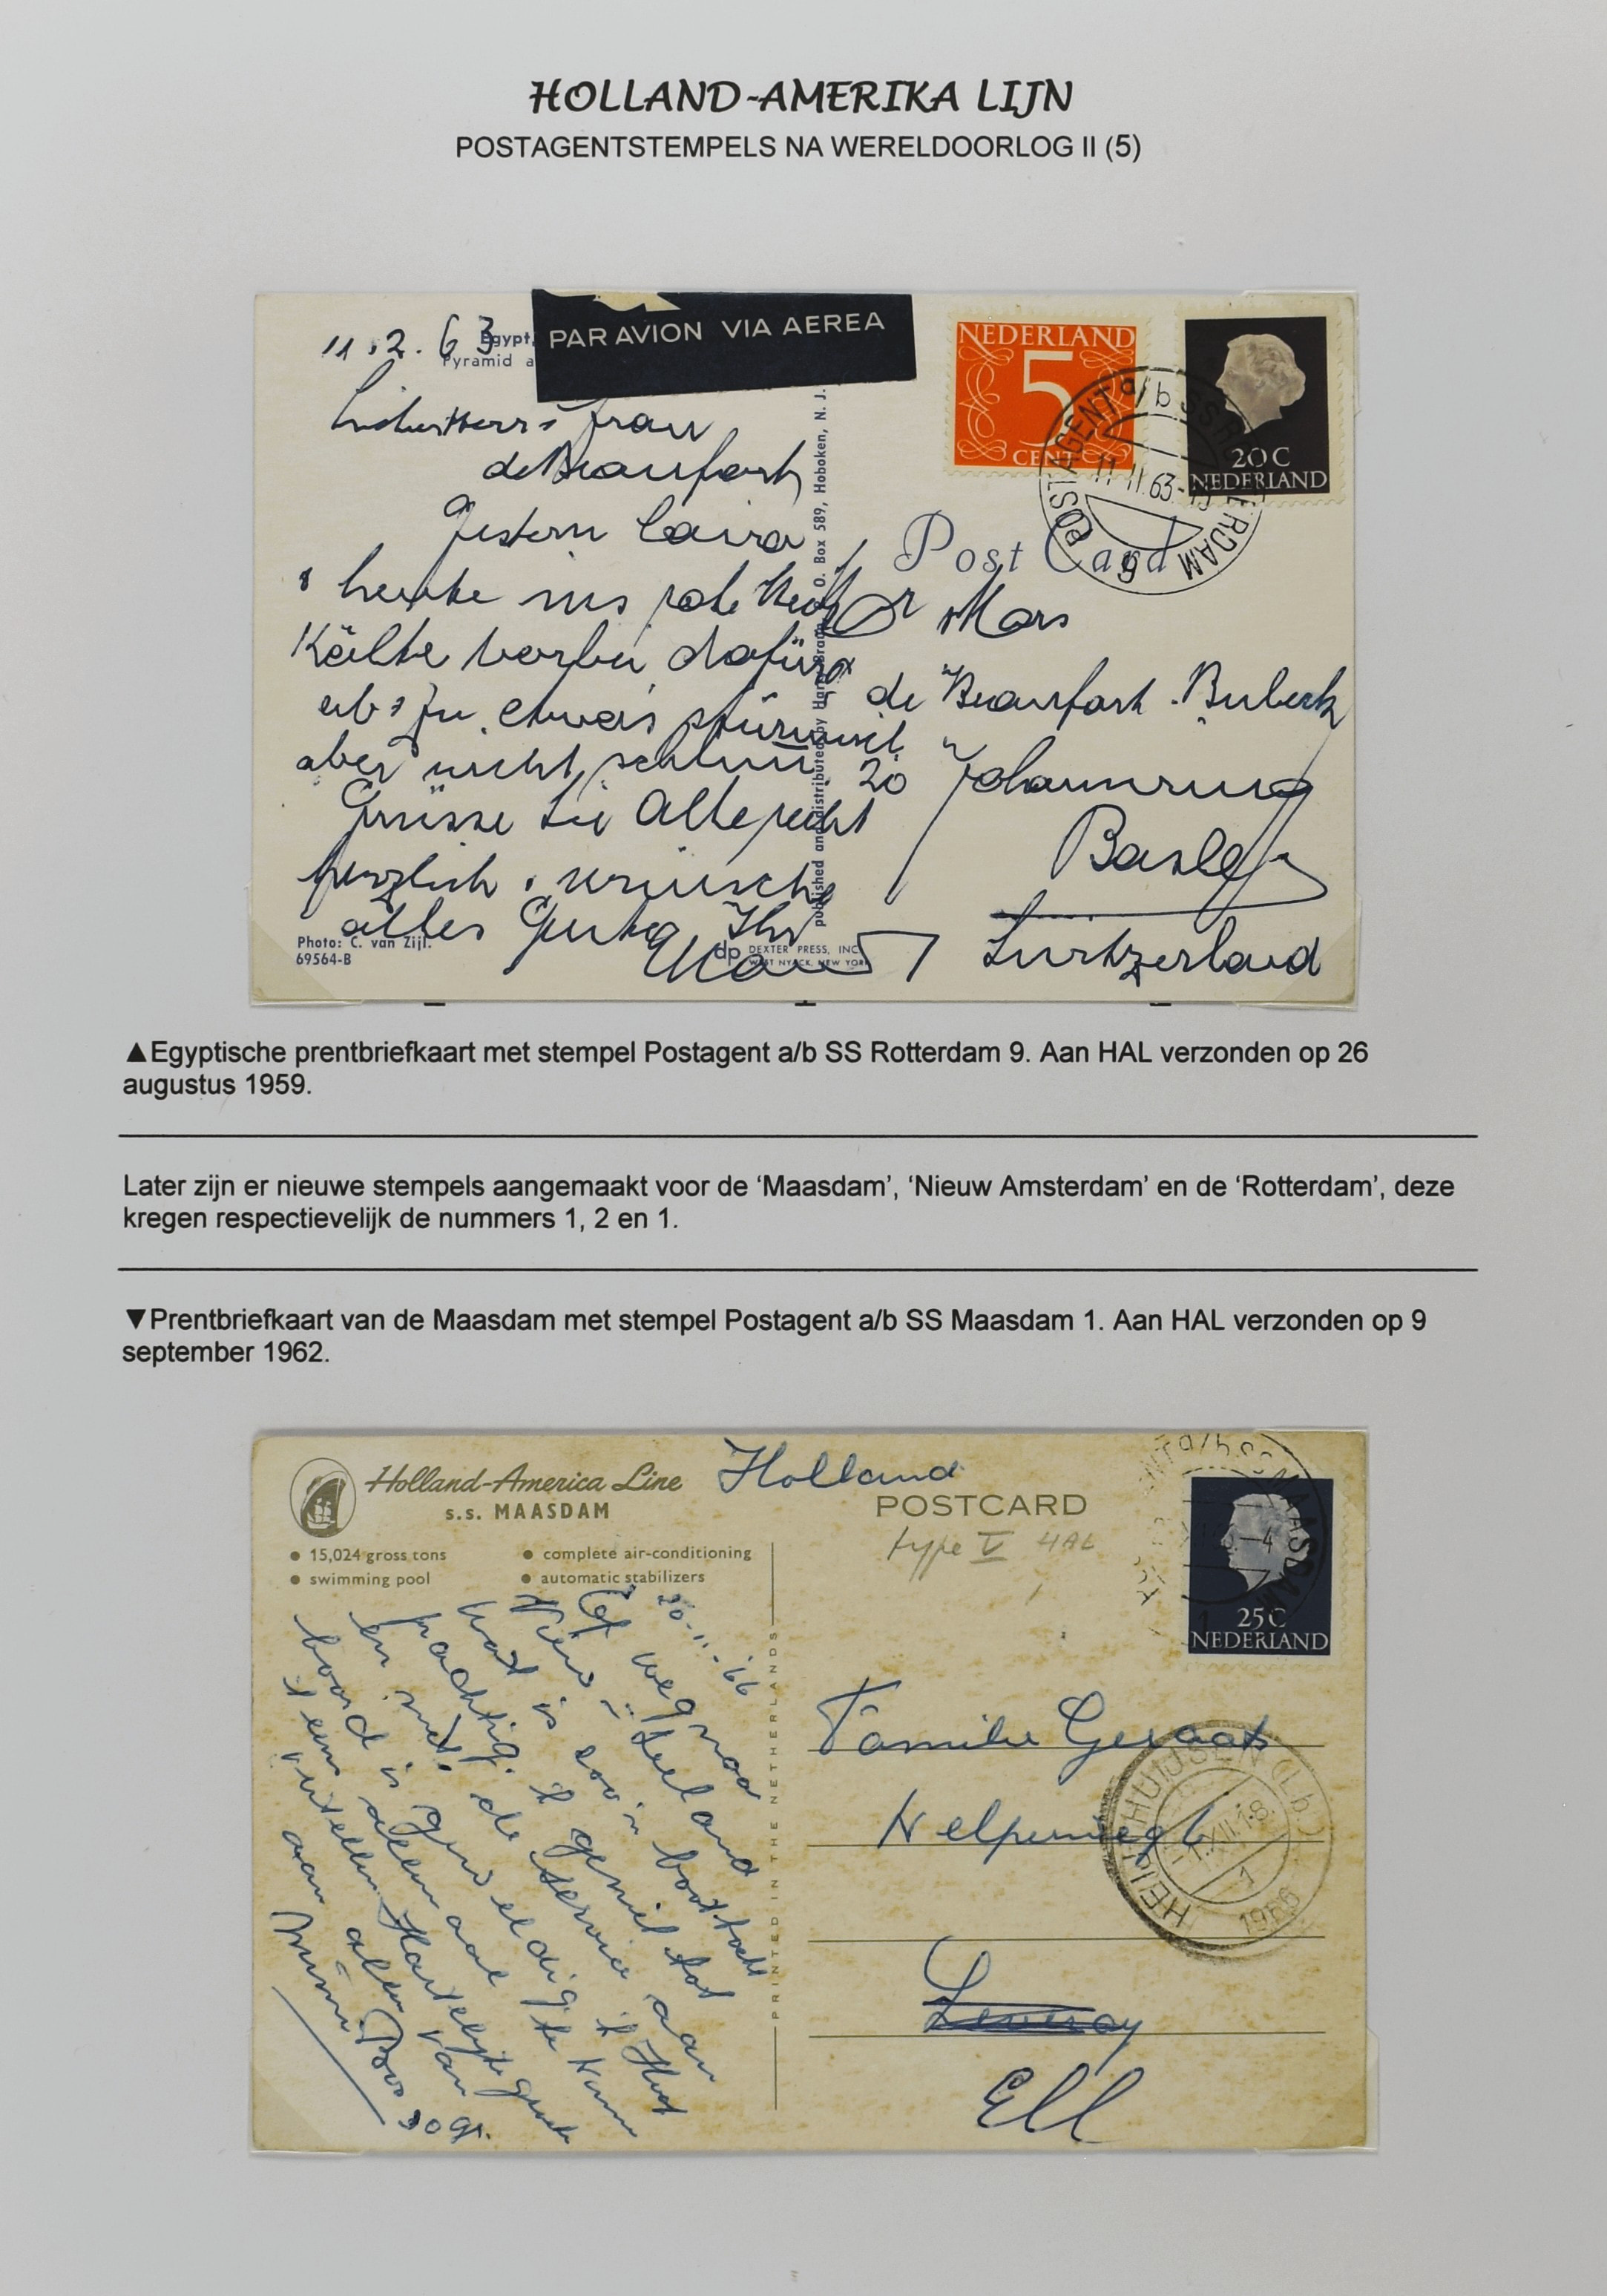 HOLLAND-AMERIKA LIJN
POSTAGENTSTEMPELS NA WERELDOORLOG II (5)
11.2.63
Egypt,
Pyramid a
PAR AVION VIA AEREA
NEDERLAND
5
CENT
20 C
NEDERLAND
POSTAGENT a/b SS ROTTERDAM
11 II 63
9
Post Card
Frau
de Beaufort
Gestern Cairo
heute ins rote Meer
Kälte vorbei dafür
ab & zu etwas stürmisch
aber nicht schlimm
Grüsse Sie Alle recht
herzlich & wünsche
alles Gute Ihr
Mars
de Beaufort
20
Basle
Switzerland
published and distributed by O. Box 589, Hoboken, N. J.
Photo: C. van Zijl.
69564-B
dp DEXTER PRESS, INC.
WEST NYACK, NEW YORK
▲Egyptische prentbriefkaart met stempel Postagent a/b SS Rotterdam 9. Aan HAL verzonden op 26
augustus 1959.
Later zijn er nieuwe stempels aangemaakt voor de ‘Maasdam’, ‘Nieuw Amsterdam’ en de ‘Rotterdam’, deze
kregen respectievelijk de nummers 1, 2 en 1.
▼Prentbriefkaart van de Maasdam met stempel Postagent a/b SS Maasdam 1. Aan HAL verzonden op 9
september 1962.
Holland-America Line
s.s. MAASDAM
Holland
POSTCARD
type V HAL
● 15,024 gross tons
● complete air-conditioning
● swimming pool
● automatic stabilizers
25 C
NEDERLAND
a/b SS MAASDAM
1
20-11-'66
Op weg naar
Nieuw-Zeeland
Wat is zoo'n boottocht
prachtig. 't geniet
en met de service aan
boord is geweldig
Hartelijke
aan allen van
PRINTED IN THE NETHERLANDS
Familie Geraats
1966
Leveroy
Ell